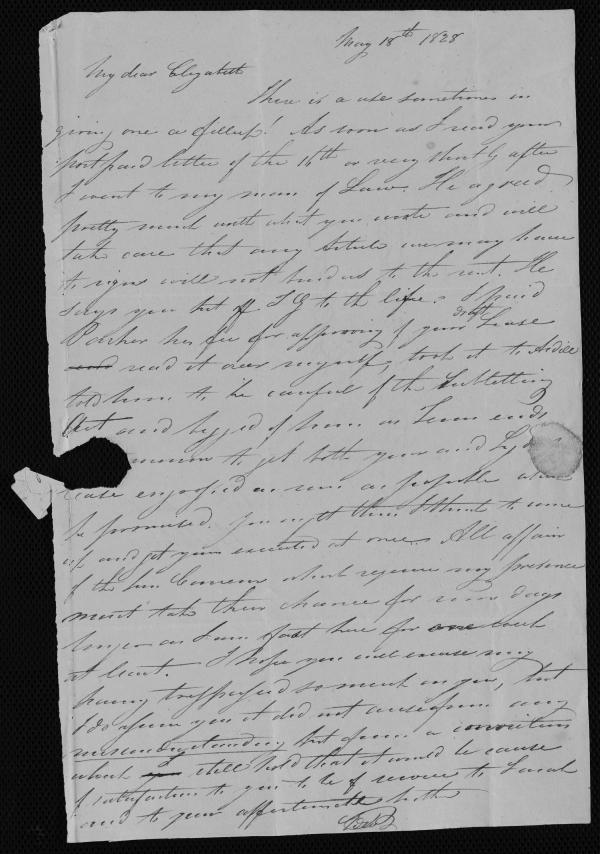 May 18th 1828
My dear Elizabeth
There is a use sometimes in
giving one a fillup! As soon as I read your
postpaid letter of the 16th or very shortly after
I went to my man of Law. He agreed
pretty much with what you wrote and will
take care that any Article we may have
to sign will not bind us to the rent. He
says you hit off T G to the life. I paid
Parker his fee for approving of your draft Lease
read it over myself, took it to Ardill
told him to be careful of the Subletting
Act and begged of him as Term ends
to get both your and
lease engrossed as soon as possible which
he promised. You might then I think to come
up and get yours executed at once. All affairs
of the which require my presence
must take their chance for some days
longer as I am fast here for one week
at least. I hope you will excuse my
having trespassed so much on you, but
I do assure you it did not arise from any
misunderstanding but from a conviction
which I still hold that it would be cause
of satisfaction to you to be of service to Sarah
and to your affectionate brother